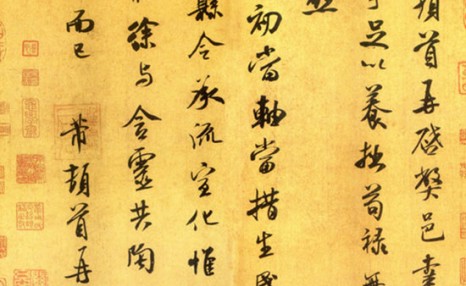 頓首再啟弊邑幸
事足以養拙苟祿無
然
初當軸當措生民
縣令承流宣化惟
徐與含靈共陶
而已 芾頓首再